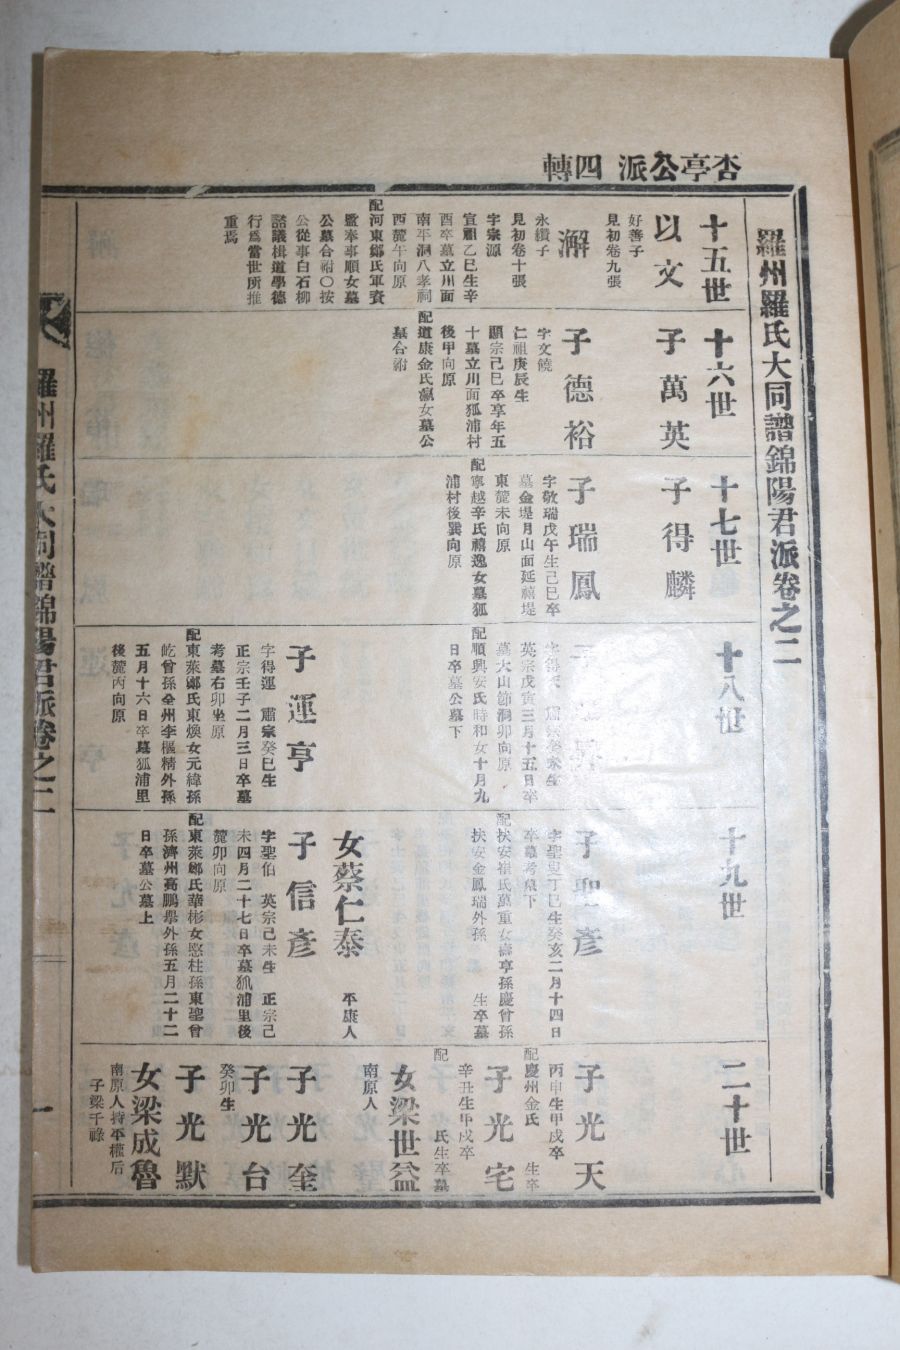 杏亭公派 四轉
羅州羅氏大同譜錦陽君派卷之二
十五世
以文
好善子
見初卷九張
澥
永纘子
見初卷十張
字宗源
宣祖乙巳生辛
酉卒墓立川面
南平洞八孝祠
西麓午向原
配河東鄭氏軍資
監奉事順女墓
公墓合祔〇按
公從事白石柳
諮議楫道學德
行爲當世所推
重焉
十六世
子萬英
子德裕
字文饒
仁祖庚辰生
顯宗己巳卒享年五
十墓立川面狐浦村
後甲向原
配道康金氏瀛女墓公
墓合祔
十七世
子得麟
子瑞鳳
字敬瑞戊午生己巳卒
墓金堤月山面延禧堤
東麓未向原
配寧越辛氏禧逸女墓狐
浦村後巽向原
十八世
子
英宗戊寅三月十五日卒
墓大山節洞卯向原
配順興安氏時和女十月九
日卒墓公墓下
子運亨
字得運 肅宗癸巳生
正宗壬子二月三日卒墓
考墓右卯坐原
配東萊鄭氏東煥女元緯孫
屹曾孫全州李楃精外孫
五月十六日卒墓狐浦里
後麓丙向原
十九世
子聖彥
字聖叟丁巳生癸亥二月十四日
卒墓考墓下
配扶安崔氏萬重女壽亨孫慶曾孫
扶安金鳳瑞外孫 生卒墓
女蔡仁泰
平康人
子信彥
字聖伯 英宗己未生 正宗己
未四月二十七日卒墓狐浦里後
麓卯向原
配東萊鄭氏華彬女愍柱孫東聖曾
孫濟州高鵬擧外孫五月二十二
日卒墓公墓上
二十世
子光天
丙申生甲戌卒
配慶州金氏 生卒
子光宅
辛丑生甲戌卒
配 氏生卒墓
女梁世益
南原人
子光奎
子光台
癸卯生
子光默
女梁成魯
南原人持平權后
子梁千祿
羅州羅氏大同譜錦陽君派卷之二
一